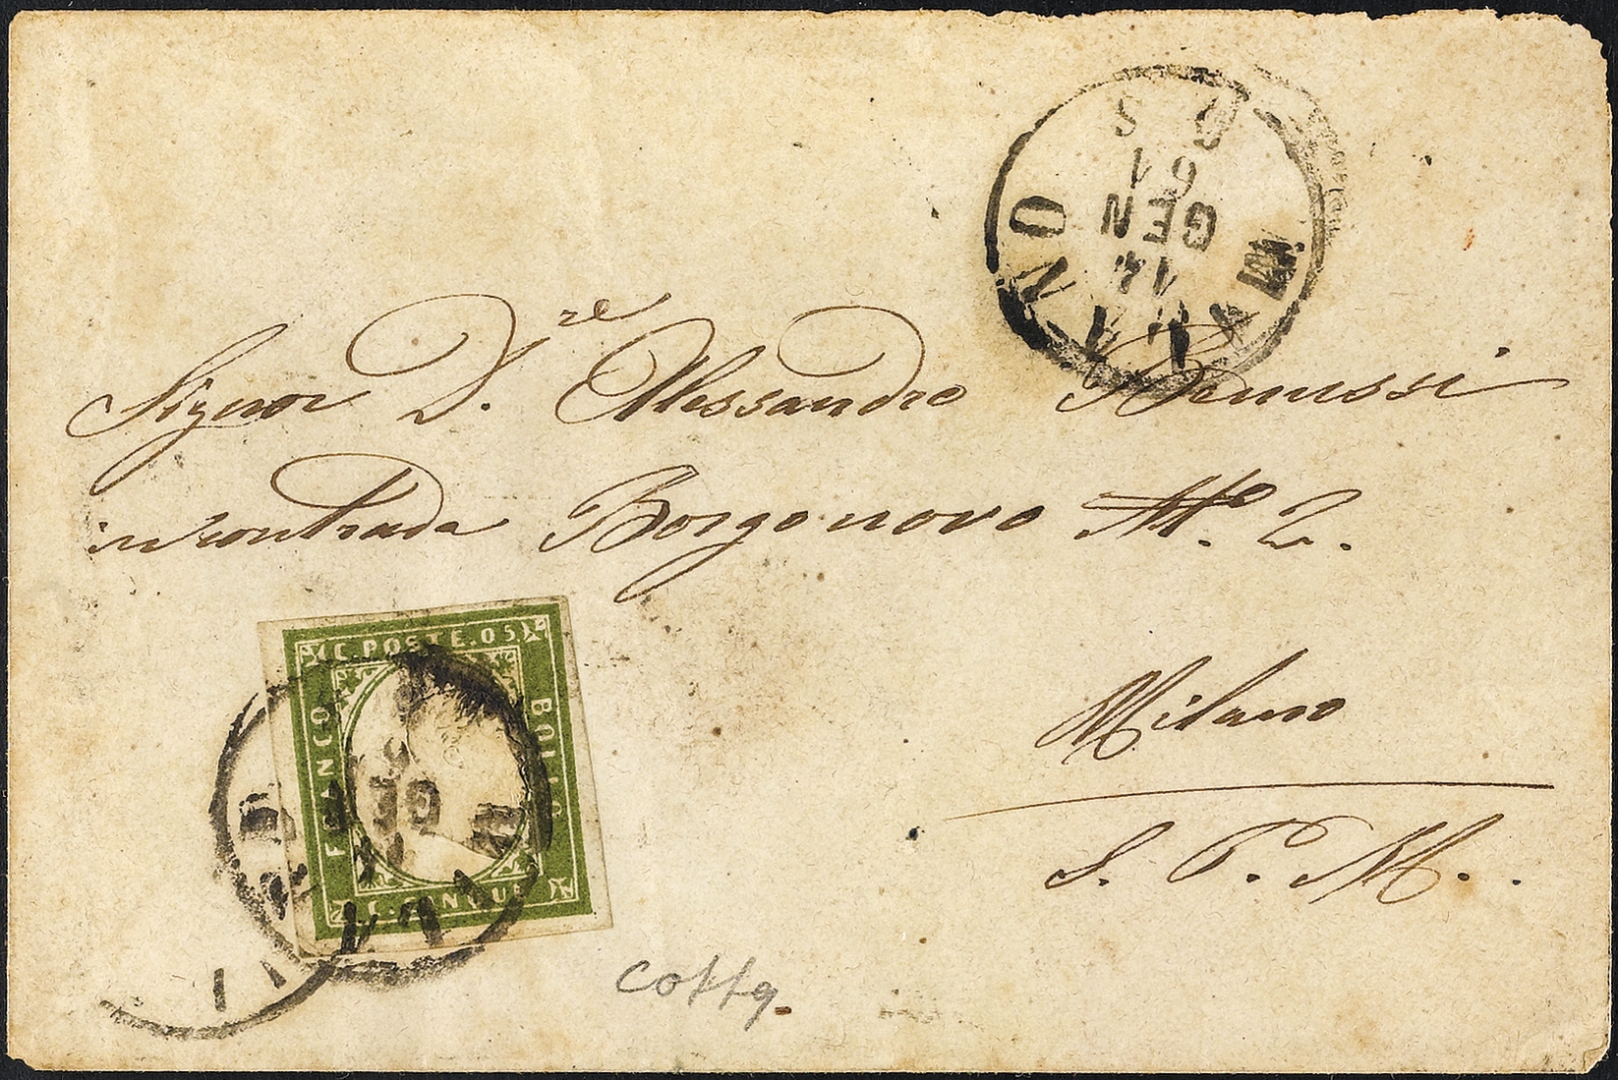 Signor D.re Alessandro Benussi
in contrada Borgonovo No. 2.
Milano
S. P. M.
MILANO
14
GEN
61
C. POSTE. 05
FRANCO
BOLLO
C. CINQUE
GE
cotta.